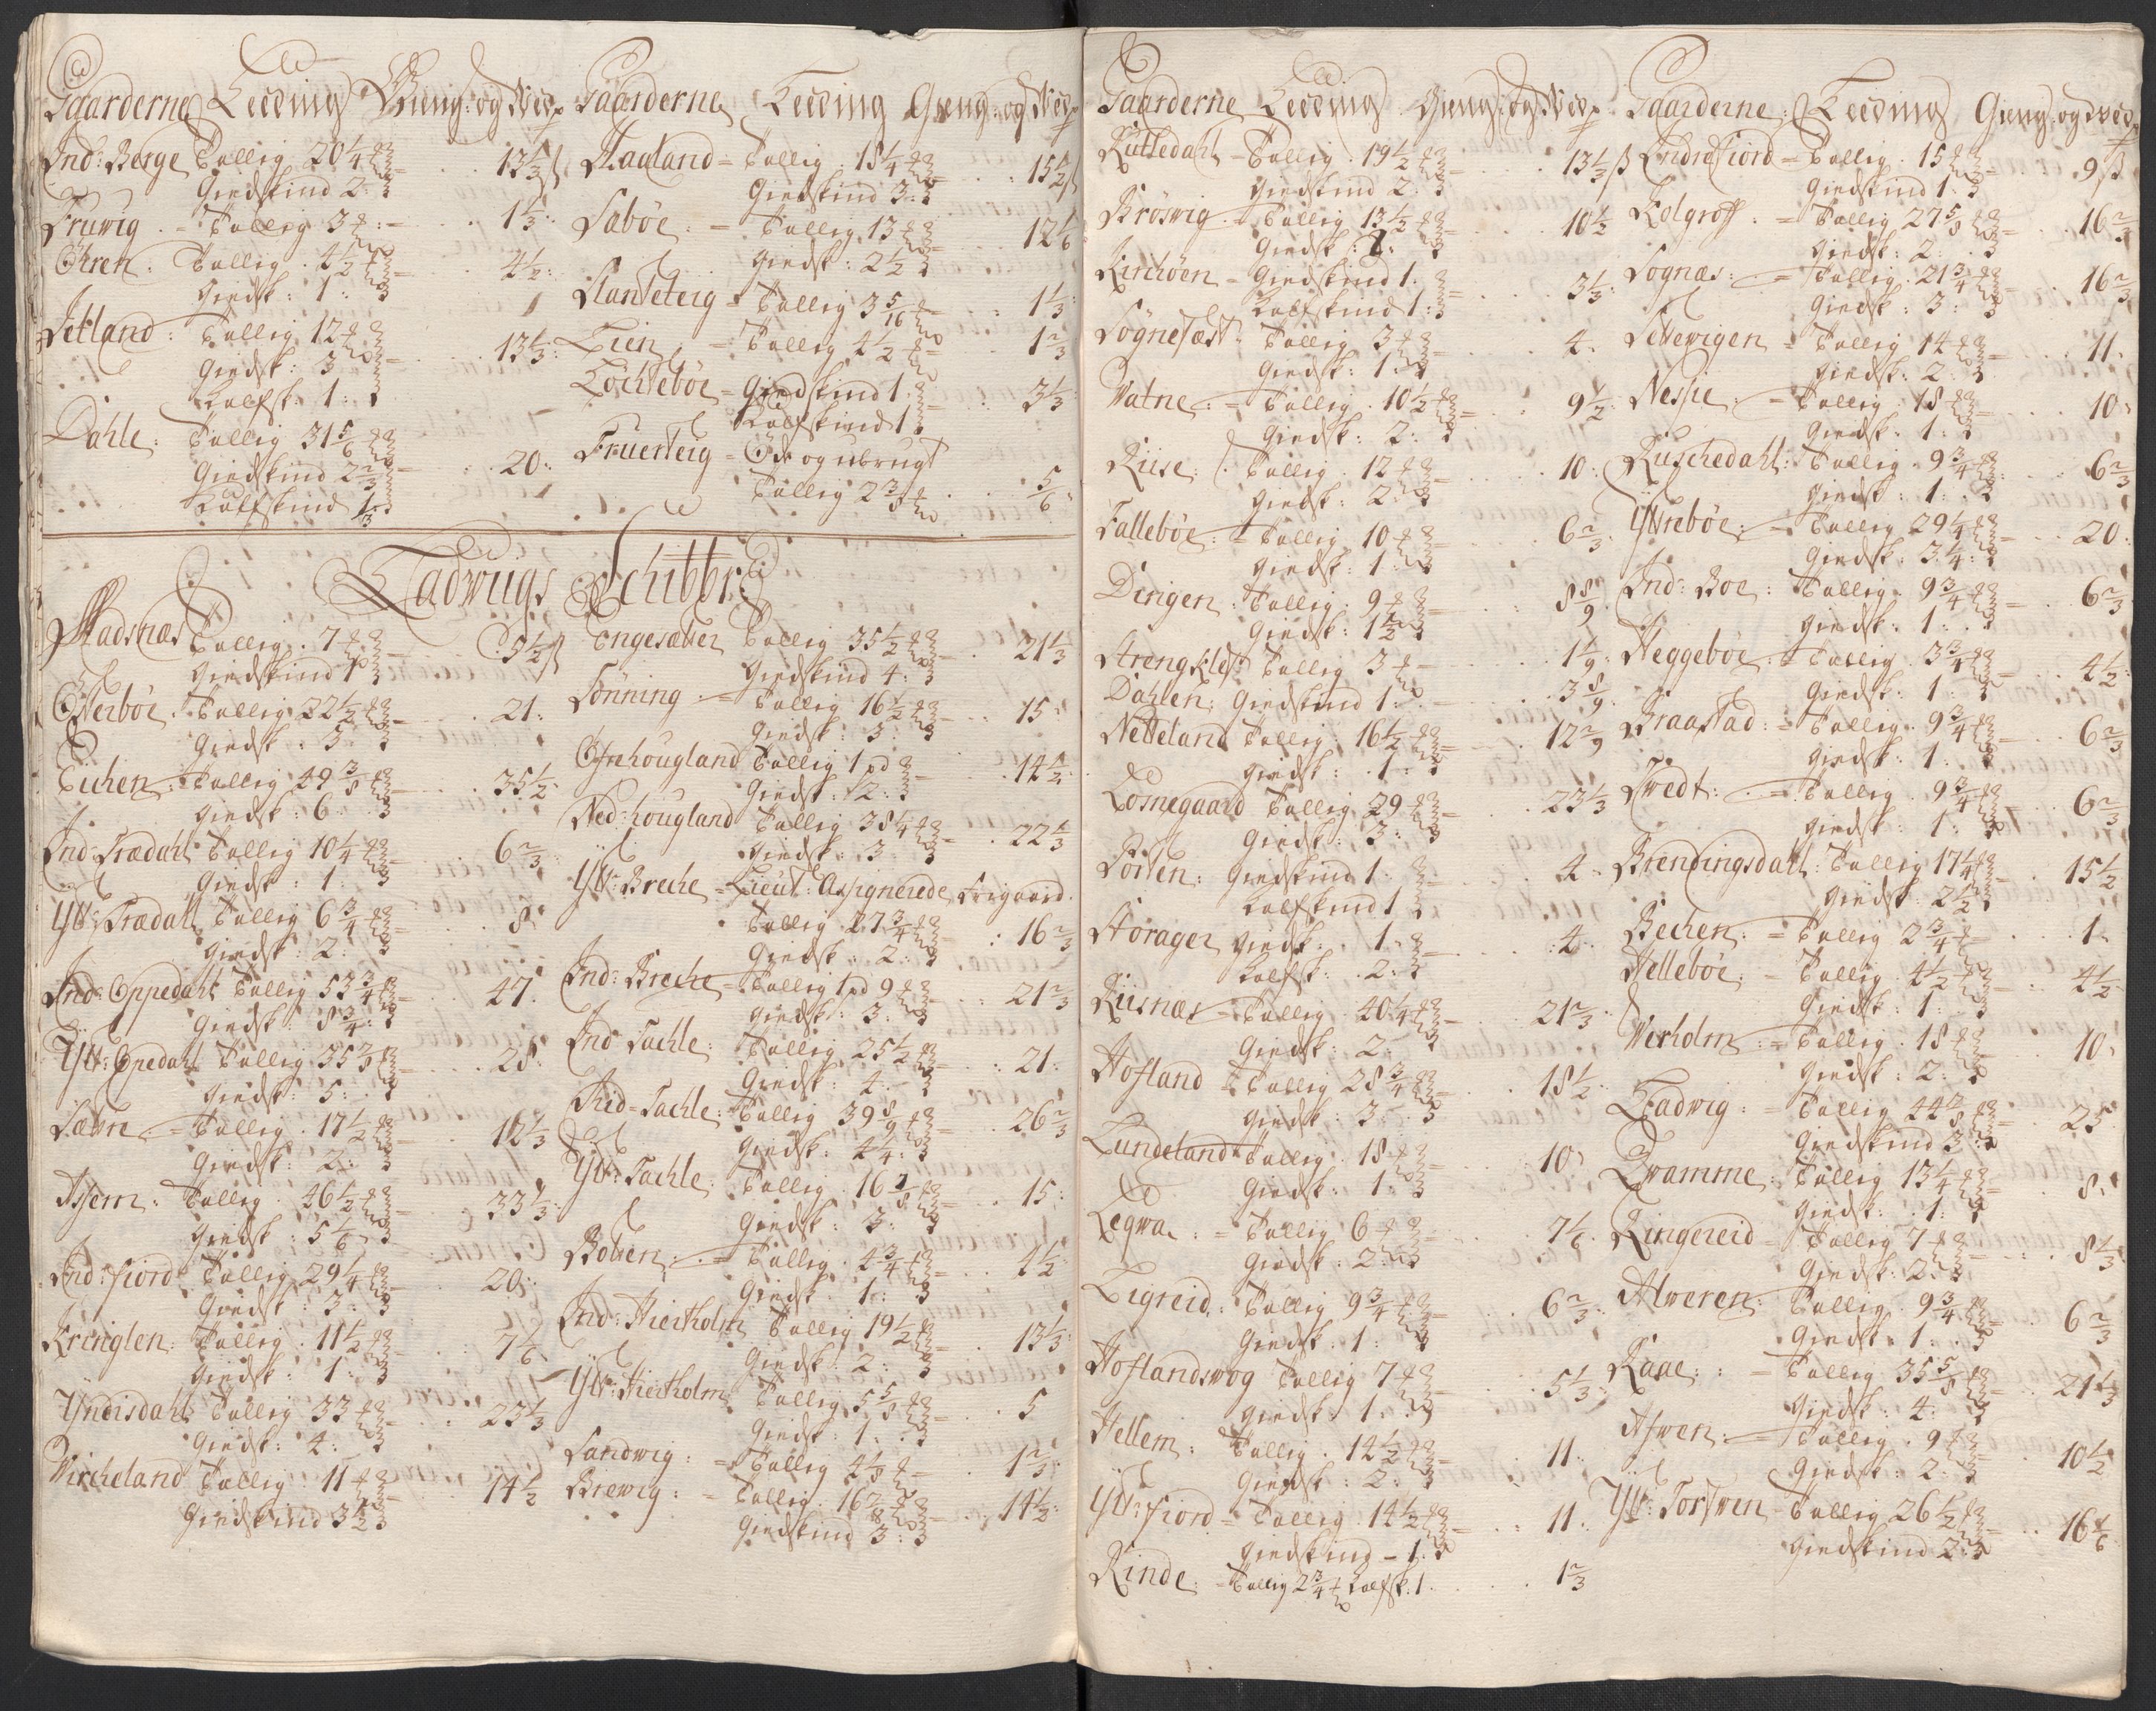 Gaarderne Leeding Gieng: og Wesp
Ind: Berge Tallig 20 1/4 ℔ 13 1/3 ß
Giedskind 2:
Fruwig - Tallig 3 ℔ 1 1/3:
Öhren: Tallig 4 1/2 ℔ 4 1/2:
Giedsk: 1:
Jetland: Tallig 12 ℔
Giedsk: 3 13 1/3:
Kalfsk: 1:
Dahle: Tallig 31 5/6 ℔
Giedskind 2 2/3 20:
Kalfskind 1/3
Gaarderne Leeding Gieng: og Wesp
Haaland = Tallig: 18 1/4 ℔ 15 1/2 ß
Giedskind 3:
Saböe: = Tallig 13 ℔ 12 1/6
Giedsk: 2 1/2
Slanteteig = Tallig 3 5/16 ℔ 1 1/3:
Lien = Tallig 4 1/2 ℔ 1 2/3
Lochteböe = Giedskind 1 3 1/3:
Kalfskind 1
Fruerteig = Öde og ubrugt
Tallig 2 3/8 ℔ 5/6:
Ladwigs Schibbre
Hadsnæs Tallig 7 ℔ 5 1/2 ß
Giedskind 1
Österböe Tallig 22 1/2 ℔ 21:
Giedsk: 3
Eichen: Tallig 49 3/8 ℔ 35 1/2
Giedsk: 6
Ind: Trædahl Tallig 10 1/4 ℔ 6 2/3:
Giedsk: 1
Ytt: Trædahl Tallig 6 3/4 ℔ 8
Giedsk: 2:
Ind: Oppedahl Tallig 53 3/4 ℔ 47.
Giedsk: 8 3/4:
Ytt: Opedahl Tallig 35 3/8 ℔ 28:
Giedsk: 5:
Sæbre = Tallig 17 1/2 ℔ 12 1/3
Giedsk: 2:
Assem: Tallig 46 1/2 ℔ 33 1/3:
Giedsk: 5 1/6
Ind: fiord Tallig 29 1/4 ℔ 20:
Giedsk: 3:
Kringlen: Tallig 11 1/2 ℔ 7 1/6
Giedsk: 1:
Yndisdahl Tallig 33 ℔ 23 1/3
Giedsk: 4:
Wircheland Tallig 11 ℔ 14 1/2
Giedskind 3 1/2
Engesætter Tallig 35 1/2 ℔ 21 1/3
Giedskind 4:
Sönning = Tallig 16 1/2 ℔ 15:
Giedsk: 3:
Ofrehougland Tallig 1 pd 14 1/2
Giedsk: 2:
Ned: hougland Tallig 38 1/4 ℔ 22 1/3
Giedsk: 3
Ytt: Breche = Lieut: Assignerede Sergaard.
Tallig 27 3/4 ℔ 16 2/3
Giedsk: 2:
Ind: Breche = Tallig 1 pd 9 ℔ 21 2/3
Giedsk: 3:
Ind: Tachle: Tallig 25 1/2 ℔ 21:
Giedsk: 4.
Mid-Tachle: Tallig 39 8/9 ℔ 26 2/3
Giedsk: 4 1/4:
Ytt: Tachle: Tallig 16 7/8 ℔ 15:
Giedsk: 3:
Botten: = Tallig 4 3/4 ℔ 4 1/2:
Giedsk: 1:
Ind: Hiertholm Tallig 19 1/2 ℔ 13 1/3:
Giedsk: 2:
Ytt: Hiertholm Tallig 5 5/8 ℔ 5
Giedsk: 1:
Sandwig: = Tallig 4 1/8 ℔ 1 2/3:
Brewig: = Tallig 16 7/8 ℔ 14 1/2:
Giedskind 3:
Gaarderne Leeding Gieng: og Wesp
Rutledahl = Tallig 19 1/2 ℔ 13 1/3 ß
Giedskind 2:
Bröswig Tallig 13 1/2 ℔ 10 1/2
Giedsk: 2:
Kirchöen = Giedskind 1. 3 1/3:
Kalfskind 1:
Sögnefæst: Tallig 3 ℔ 4:
Giedsk: 1:
Watne: = Tallig 10 1/2 ℔ 9 1/2
Giedsk: 2:
Riise: Tallig 12 ℔ 10:
Giedsk: 2:
Falleböe: = Tallig 10 ℔ 6 2/3:
Giedsk: 1:
Dingen: Tallig 9 ℔ 8 8/9
Giedsk: 1 1/2
Strengklef: Tallig 3 ℔ 1 1/9:
Dahlen: Giedskind 1: 3 8/9:
Netteland Tallig 16 1/2 ℔ 12 2/9
Giedsk: 1:
Losnegaard Tallig 29 ℔ 23 1/3
Giedsk: 3:
Porten: Giedskind 1 4
Kalfskind 1
Storager Giedsk: 1: 4
Kalfsk: 2:
Riisnæs = Tallig 40 1/4 ℔ 21 2/3
Giedsk: 2:
Hofland = Tallig 28 3/4 ℔ 18 1/2
Giedsk: 3:
Lundeland Tallig 18 ℔ 10
Giedsk: 1:
Leqwa: = Tallig 6 ℔ 7 1/6
Giedsk: 2:
Ligreid: Tallig 9 3/4 ℔ 6 2/3:
Giedsk: 1:
Hoflandswog Tallig 7 ℔ 5 1/3:
Giedsk: 1:
Hellem: Tallig 14 1/2 ℔ 11:
Giedsk: 2:
Ytt: fiord = Tallig 14 1/2 ℔ 11:
Giedskind - 1:
Rinde: = Tallig 2 3/4 ℔ Kalfsk: 1. 1 2/3
Gaarderne: Leeding Gieng: og Wesp
Indrefiord = Tallig 15 ℔ 9 ß
Giedskind 1:
Kolgroff: = Tallig 27 5/8 ℔ 16 2/3
Giedsk: 2:
Sognæs: = Tallig 21 3/4 ℔ 16 2/3
Giedsk: 3:
Settewigen = Tallig 14 ℔ 11:
Giedsk: 2:
Nessie: = Tallig 18 ℔ 10
Giedsk: 1:
Ruschedahl: Tallig 9 3/4 ℔ 6 2/3
Giedsk: 1:
Yttreböe: = Tallig 29 1/4 ℔ 20:
Giedsk: 3 1/4:
Ind: Boe: Tallig 9 3/4 ℔ 6 2/3
Giedsk: 1:
Heggeböe = Tallig 3 3/4 ℔ 4 1/2:
Giedsk: 1:
Braastad: = Tallig 9 3/4 ℔ 6 2/3
Giedsk: 1:
Twedt: = Tallig 9 3/4 ℔ 6 2/3
Giedsk: 1:
Brendingsdahl: Tallig 17 1/4 ℔ 15 1/2
Giedsk: 2 1/2
Bechen: = Tallig 2 3/4 ℔ 1
Helleböe: = Tallig 4 1/2 ℔ 4 1/2
Giedsk: 1:
Werholm: = Tallig 18 ℔ 10
Giedsk: 2:
Ladwig: = Tallig 44 3/8 ℔ 25
Giedskind 3:
Qwamme: Tallig 13 1/4 ℔ 8:
Giedsk: 1:
Ringereid Tallig 7 ℔ 8 1/3
Giedsk: 2:
Alweren: Tallig 9 3/4 ℔ 6 2/3
Giedsk: 1
Raae: = Tallig 35 5/8 ℔ 21 1/3
Giedsk: 4:
Aswen: = Tallig 9 ℔ 10 1/2
Giedsk: 2:
Ytt: Torswen = Tallig 26 1/2 ℔ 16 1/6
Giedskind 2: